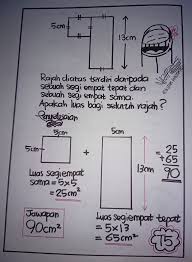 5cm
13cm
Rajah diatas terdiri daripada
sebuah segi empat tepat dan
sebuah segi empat sama.
Apakah luas bagi seluruh rajah?
Penyelesaian
5cm
5cm
+
5cm
13cm
25
+ 65
90
Luas segiempat
sama = 5x5
= 25cm²
Luas segiempat tepat
= 5x13
= 65cm²
Jawapan
90cm²
75